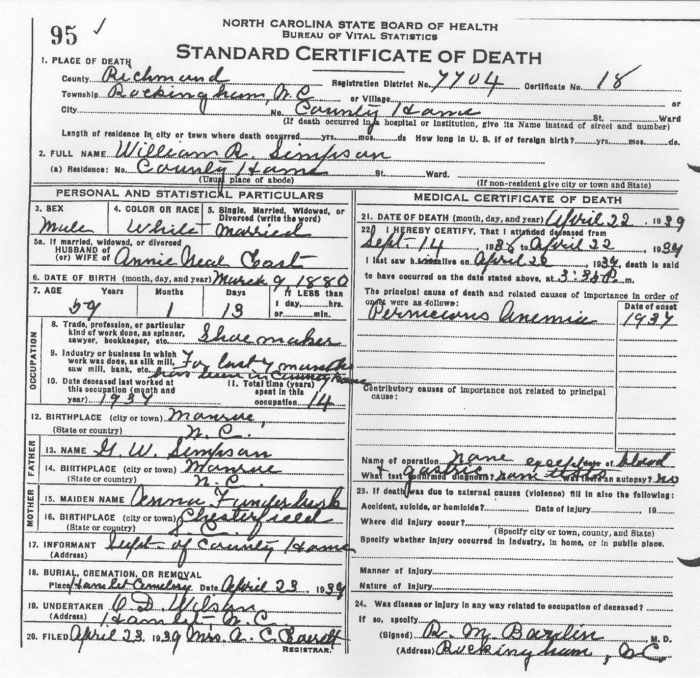 95 ✓
NORTH CAROLINA STATE BOARD OF HEALTH
BUREAU OF VITAL STATISTICS
STANDARD CERTIFICATE OF DEATH
1. PLACE OF DEATH
County Richmond Registration District No. 7704 Certificate No. 18
Township Rockingham, N.C. or Village or
City No. County Home St. Ward
(If death occurred in a hospital or institution, give its Name instead of street and number)
Length of residence in city or town where death occurred yrs. mos. ds How long in U. S. if of foreign birth? yrs. mos. ds.
2. FULL NAME William R. Simpson
(a) Residence: No. County Home St. Ward.
(Usual place of abode) (If non-resident give city or town and State)
PERSONAL AND STATISTICAL PARTICULARS
3. SEX 4. COLOR OR RACE 5. Single, Married, Widowed, or Divorced (write the word)
Male White married
5a. If married, widowed, or divorced
HUSBAND OF
(or) WIFE OF Annie Neal
6. DATE OF BIRTH (month, day, and year) March 9, 1880
7. AGE Years Months Days If LESS than
59 1 13 1 day, hrs.
or min.
OCCUPATION
8. Trade, profession, or particular kind of work done, as spinner, sawyer, bookkeeper, etc. Shoemaker
9. Industry or business in which work was done, as silk mill, saw mill, bank, etc. For last 7 months
has been in County Home
10. Date deceased last worked at this occupation (month and year) 1937
11. Total time (years) spent in this occupation 14
12. BIRTHPLACE (city or town) Monroe,
(State or country) N.C.
FATHER
13. NAME G. W. Simpson
14. BIRTHPLACE (city or town) Monroe
(State or country) N.C.
MOTHER
15. MAIDEN NAME Anna Funderburk
16. BIRTHPLACE (city or town) Chesterfield
(State or country) S.C.
17. INFORMANT Supt. of County Home
(Address)
18. BURIAL, CREMATION, OR REMOVAL
Place Hamlet Cemetery Date April 23, 1939
19. UNDERTAKER O. D. Wilson
(Address) Hamlet, N.C.
20. FILED April 23, 1939 Mrs. A. C.
REGISTRAR.
MEDICAL CERTIFICATE OF DEATH
21. DATE OF DEATH (month, day, and year) April 22, 1939
22. I HEREBY CERTIFY, That I attended deceased from
Sept-14, 1938 to April 22, 1939
I last saw h im alive on April 22, 1939, death is said
to have occurred on the date stated above, at 3:35 P. m.
The principal cause of death and related causes of importance in order of
onset were as follows: Date of onset
Pernicious Anemia 1937
Contributory causes of importance not related to principal
cause:
Name of operation none except Date of blood
What test confirmed diagnosis? & gastric tests Was there an autopsy? no
23. If death was due to external causes (violence) fill in also the following:
Accident, suicide, or homicide? Date of injury , 19
Where did injury occur?
(Specify city or town, county, and State)
Specify whether injury occurred in industry, in home, or in public place.
Manner of Injury
Nature of Injury
24. Was disease or injury in any way related to occupation of deceased?
If so, specify
(Signed) R. M. , M. D.
(Address) Rockingham, N.C.